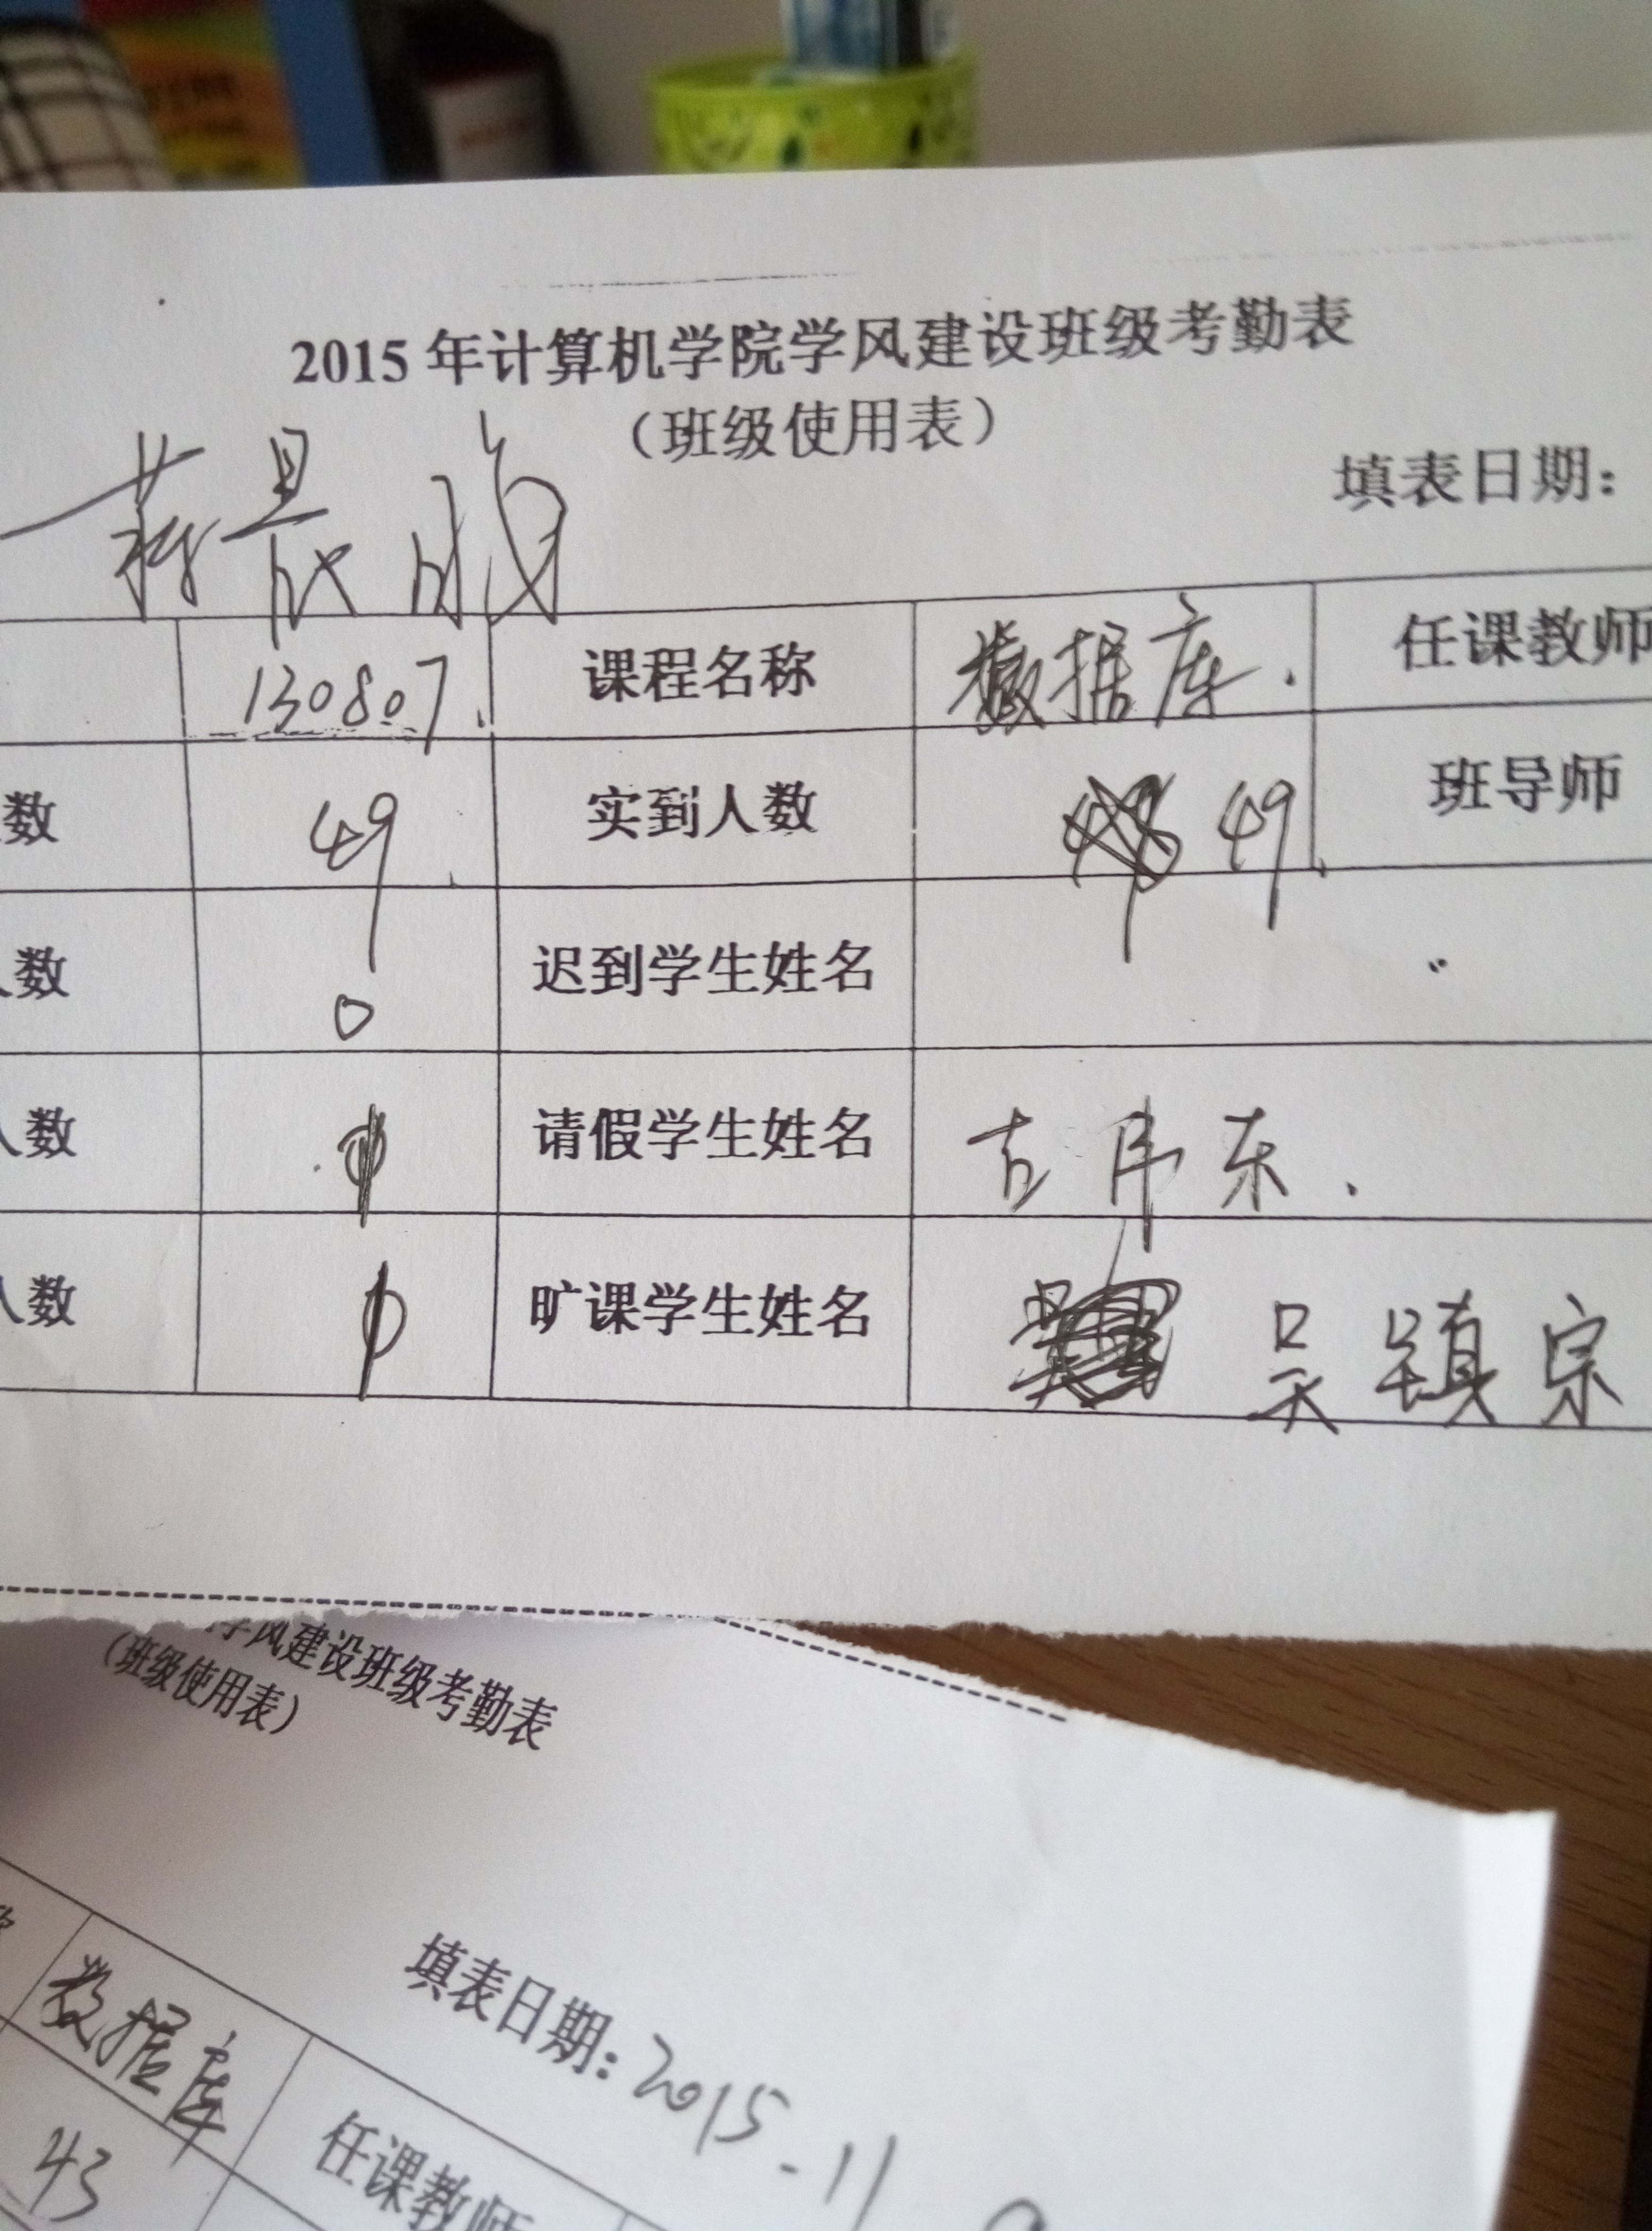 2015年计算机学院学风建设班级考勤表
（班级使用表）
填表日期：
130807. 课程名称 数据库. 任课教师
数 49 实到人数 49 班导师
人数 0 迟到学生姓名
人数 请假学生姓名 古伟东.
人数 旷课学生姓名 吴镇宗
学风建设班级考勤表
（班级使用表）
填表日期：2015-11
数据库 任课教师
43